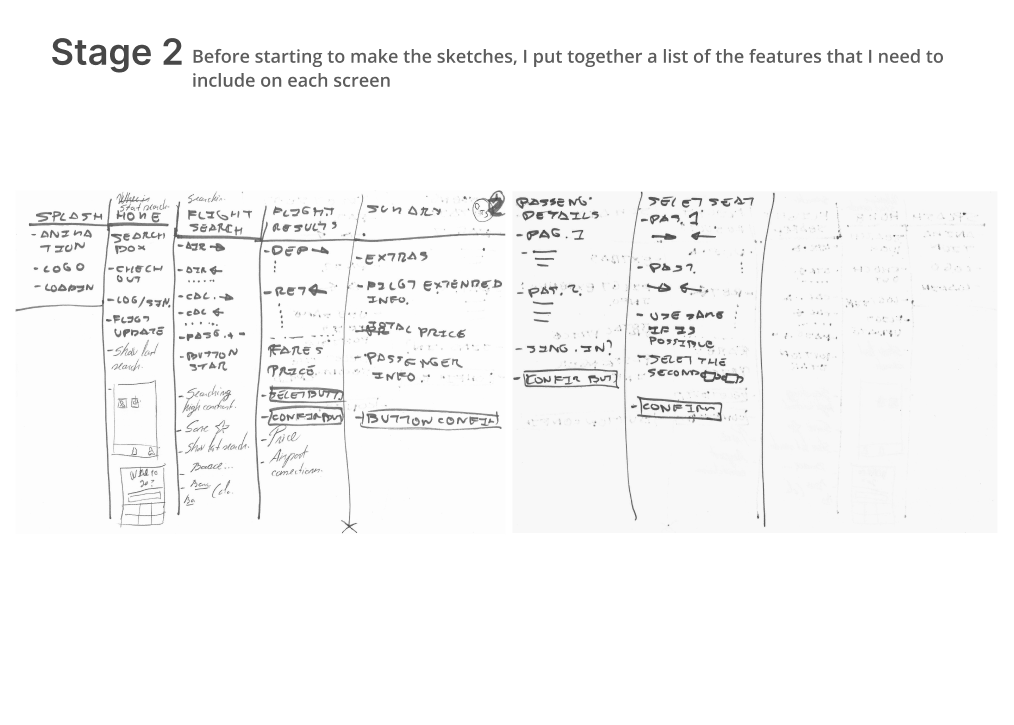 Stage 2
Before starting to make the sketches, I put together a list of the features that I need to
include on each screen
SPLASH
- ANIMA
TION
- LOGO
- LOADIN
Start search
HOME
SEARCH
BOX
- CHECK
OUT
- LOG/SIN.
- FLIGT
UPDATE
- Show last
search.
Searchin
FLIGHT
SEARCH
- AIR →
- AIR ←
- CAL. →
- CAL ←
- PASS. + -
- BUTTON
STAR
- Searching
high contrast.
- Save
- Show last search.
FLIGHT
RESULTS
- DEP →
- RET ←
FARES
PRICE.
- SELET BUTT.
- CONFIR BUT
- Price
- Airport
connections.
SUMARY
- EXTRAS
- FILGT EXTENDED
INFO.
TOTAL PRICE
- PASSENGER
INFO.
- BUTTON CONFIR
2
PASSENG.
DETAILS
- PAG. 1
- PAT. 2.
- SING. IN?
- CONFIR BUT
SELET SEAT
- PAG. 1
→ ←
- PAS 2.
→ ←
- USE SAME
IF IS
POSSIBLE
- SELET THE
SECOND
- CONFIRM